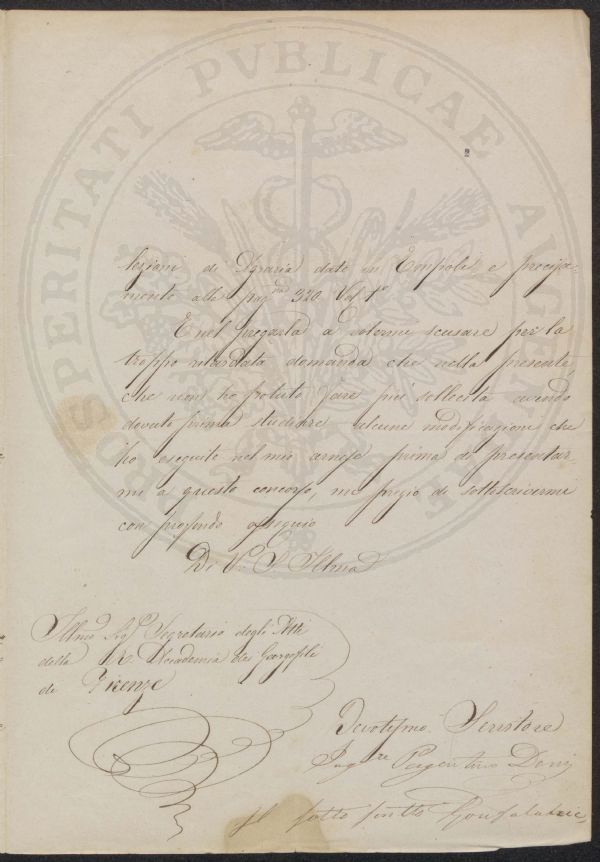 PROSPERITATI PVBLICAE AVGENDAE
lezioni di Agraria date in Empoli, e precisa-
mente alla pag.na 320. Vol. 1o
E nel pregarla a volermi scusare per la
troppo ritardata domanda che nella presente,
che non ho potuto fare più sollecita avendo
dovuto prima studiare alcune modificazioni che
ho eseguite nel mio arnese prima di presentar-
mi a questo concorso, mi pregio di sottoscrivermi
con profondo ossequio
Di V. S. Illma
Illmo Sigr Segretario degli Atti
della R. Accademia dei Georgofili
di Firenze
Devotissmo Servitore
Ingre
Il sotto